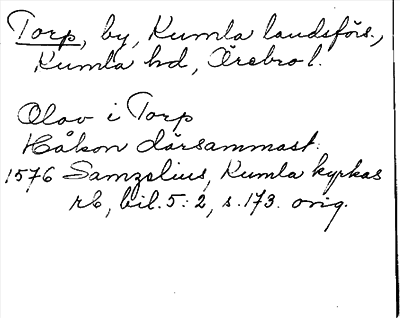 Torp, by, Kumla landsförs.,
Kumla hd, Örebro l.
Olov i Torp
Håkon därsammast.
1576 Samzelius, Kumla kyrkas
rb, bil. 5:2, s. 173. orig.